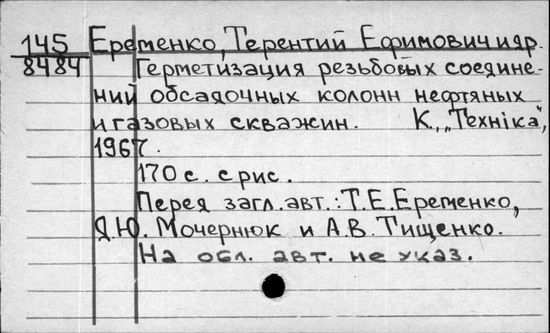 145 Еременко, Терентий Ефимович и др.
8484 Герметизация резьбовых соедине-
ний обсадочных колонн нефтяных
и газовых скважин. К., „Технiка",
1967.
170 с. с рис.
Перед загл. авт.: Т.Е. Еременко,
Я.Ю. Мочернюк и А.В. Тищенко.
На обл. авт. не указ.